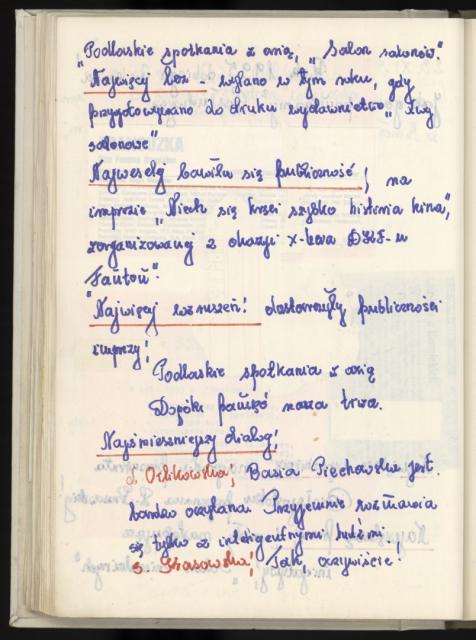 "Podlaskie spotkania z arią", "Salon salonów".
"Najwięcej łez - wylano w tym roku, gdy
przygotowywano do druku wydawnictwo "Dwy
salonowe"
Najweselej bawiła się publiczność! na
imprezie "Niech się kręci szybko historia kina",
zorganizowanej z okazji X-lecia DKF-u
"Fantom".
"Najwięcej wzruszeń! dostarczyły publiczności
imprezy!
Podlaskie spotkania z arią
Dopóki pamięć nasza trwa.
Najśmieszniejszy dialog!
J. Orlikowska! Basia Piechowska jest
bardzo oczytana. Przyjemnie rozmawia
się tylko z inteligentnymi ludźmi!
S. Grasowska! Tak, oczywiście!